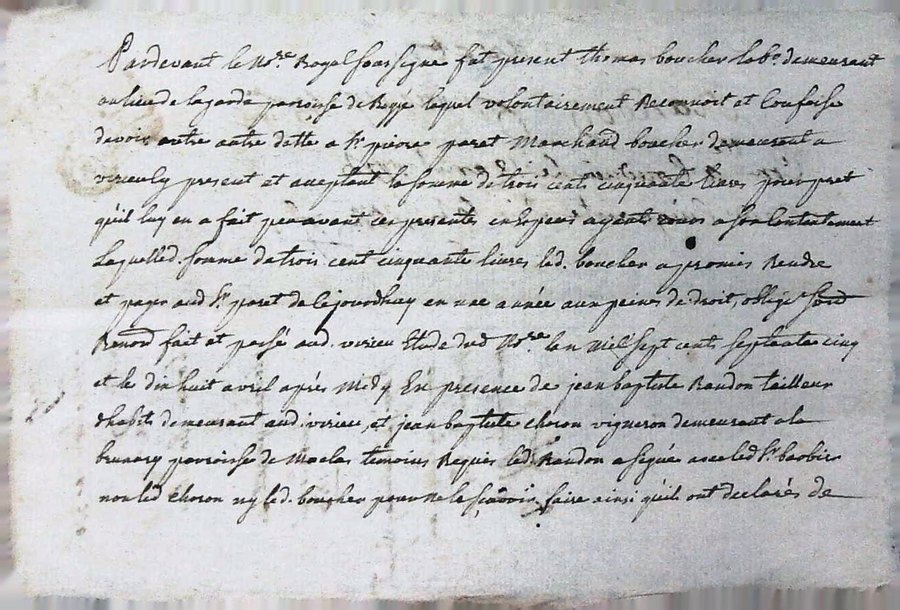 Pardevant le No.re Royal soussigné fut present thomas boucher lab.r demeurant
au lieu de lagarde parroisse de laquel volontairement Reconnoit et Confesse
devoir outre autre dette a S.r pierre paret Marchand boucher demeurant a
virieu ly present et aceptant la somme de trois cents cinquante livres pour pret
qu'il luy en a fait peu avant ces presentes en ayant cours a son Contentement
Laquelled. somme de trois cent cinquante livres led. boucher a promis Rendre
et payer aud S.r paret de cejourdhuy en une année aux peines de droit, oblige
fait et passé aud. virieu Etude dud No.re lan Mil sept cents septante cinq
et le dix huit avril après Midy En presence de jean baptiste Randon tailleur
d'habits demeurant aud. virieu, et jean baptiste choron vigneron demeurant a la
parroisse de Maclas temoins Requis led. Randon a signé avec led S.r
non led choron ny led. boucher pour ne le sçavoir faire ainsi qu'ils ont declarés de